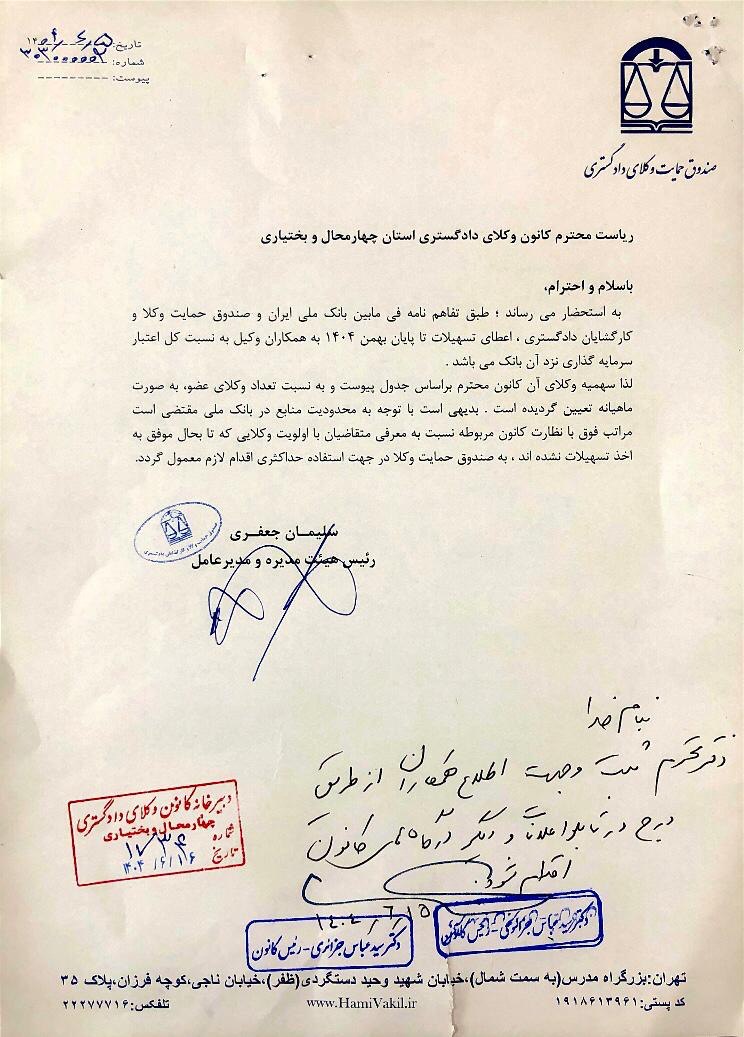 تاریخ: ۱۴۰۴/۶/۵
شماره:
پیوست:
صندوق حمایت وکلای دادگستری
ریاست محترم کانون وکلای دادگستری استان چهارمحال و بختیاری
باسلام و احترام،
به استحضار می رساند ؛ طبق تفاهم نامه فی مابین بانک ملی ایران و صندوق حمایت وکلا و
کارگشایان دادگستری ، اعطای تسهیلات تا پایان بهمن ۱۴۰۴ به همکاران وکیل به نسبت کل اعتبار
سرمایه گذاری نزد آن بانک می باشد .
لذا سهمیه وکلای آن کانون محترم براساس جدول پیوست و به نسبت تعداد وکلای عضو، به صورت
ماهیانه تعیین گردیده است . بدیهی است با توجه به محدودیت منابع در بانک ملی مقتضی است
مراتب فوق با نظارت کانون مربوطه نسبت به معرفی متقاضیان با اولویت وکلایی که تا بحال موفق به
اخذ تسهیلات نشده اند ، به صندوق حمایت وکلا در جهت استفاده حداکثری اقدام لازم معمول گردد.
سلیمـان جعفـری
رئیس هیئت مدیره و مدیرعامل
بنام خدا
دفتر محترم ثبت وجهت اطلاع همکاران از طریق
درج در تابلو اعلانات و دیگر درگاه های کانون
اقدام شود.
۱۴۰۴/۶/۱۵
دبیرخانه کانون وکلای دادگستری
چهارمحال و بختیاری
شماره ۱۷۳۴
تاریخ ۱۴۰۴/۶/۱۶
دکتر سید عباس جزائری - رئیس کانون
تهران:بزرگراه مدرس(به سمت شمال)،خیابان شهید وحید دستگردی(ظفر)،خیابان ناجی،کوچه فرزان،پلاک ۳۵
کد پستی: ۱۹۱۸۶۱۳۹۶۱ www.HamiVakil.ir تلفکس: ۲۲۲۷۷۷۱۶